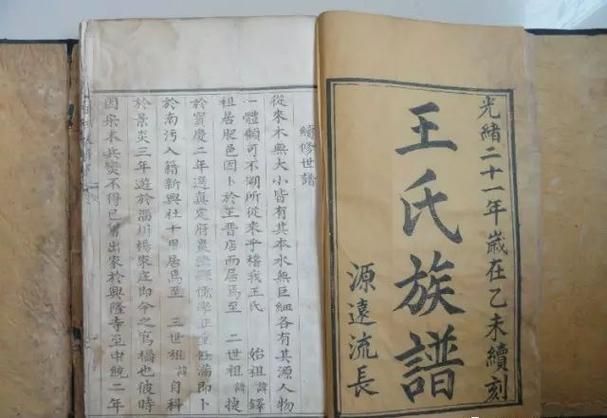 光緒二十一年歲在乙未續刻
王氏族譜
源遠流長
續修世譜
從來木無大小皆有其本水無巨細各有其源人物
一體顧可不溯所從來乎稽我王氏 始祖諱鐸
祖居肥邑因卜於王晋店而居焉至 二世祖諱捷
於寳慶二年選真定府儒學正堂任滿即卜
於南汚入籍新興社十甲居焉至 三世祖諱自科
於景炎三年遊於淄川楊家庄即今之窩橋也彼時
因宋末兵變不得已出家於興隆寺至中統二年